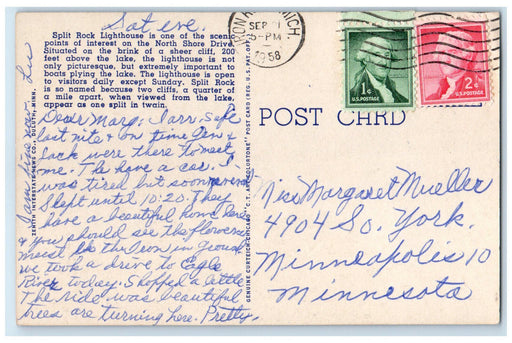 Sat eve.
Split Rock Lighthouse is one of the scenic
points of interest on the North Shore Drive.
Situated on the brink of a sheer cliff, 200
feet above the lake, the lighthouse is not
only picturesque, but extremely important to
boats plying the lake. The lighthouse is open
to visitors daily except Sunday. Split Rock
is so named because two cliffs, a quarter of
a mile apart, when viewed from the lake,
appear as one split in twain.
Dear Marg; I arr. safe
last nite & on time. Gen &
Jack were there to meet
me. The have a car. I
was tired but soon revived
Slept until 10:20. They
have a beautiful home here
& you should see the flowers
must be the Iron in ground
we took a drive to Eagle
River today. Shopped a little
The ride was beautiful
trees are turning here. Pretty.
I am fine now. Lu
ZENITH INTERSTATE NEWS CO., DULUTH, MINN.
GENUINE CURTEICH-CHICAGO "C.T. ART-COLORTONE" POST CARD (REG. U.S. PAT. OFF.)
IRON R MICH.
SEP
5-PM
1958
1¢
U.S. POSTAGE
2¢
U.S. POSTAGE
POST CARD
Miss Margaret Mueller
4904 So. York.
Minneapolis 10
Minnesota